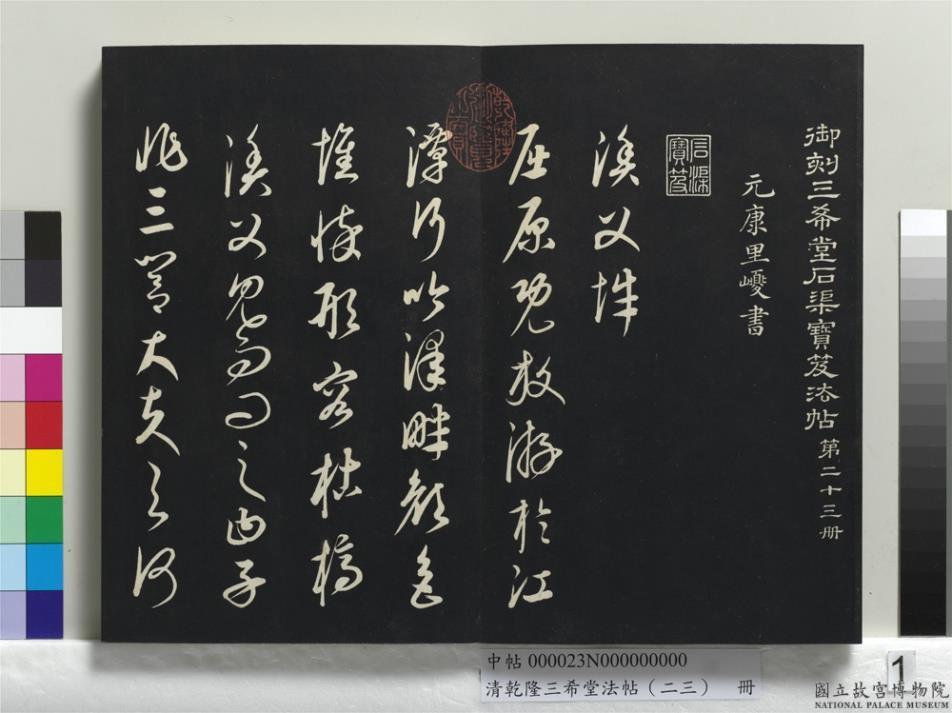 御刻三希堂石渠寶笈法帖 第二十三冊
元康里巎書
石渠寶笈
漁父辭
屈原既放游於江
潭行吟澤畔顏色
憔悴形容枯槁
漁父見而問之曰子
非三閭大夫與何
中帖 000023N000000000
清乾隆三希堂法帖(二三) 冊
1
國立故宮博物院
NATIONAL PALACE MUSEUM